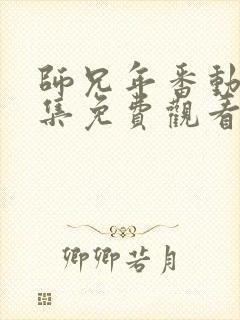 師兄年番動
集免費觀看
卿卿若月